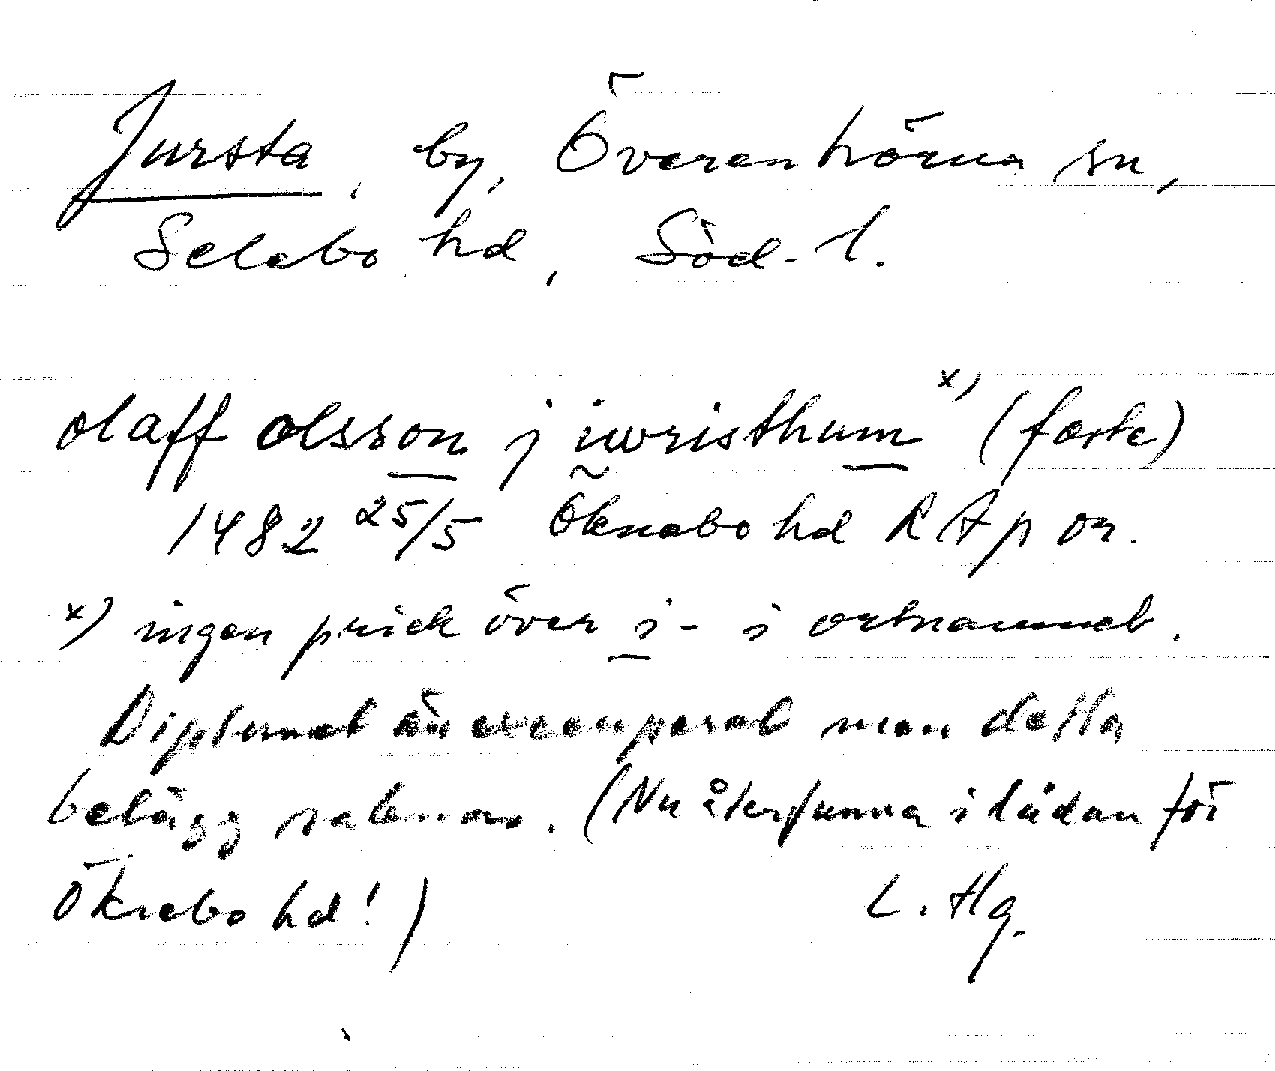 Jursta, by, Överenhörna sn,
Selebo hd, Söd. l.
olaff olsson j iwristhum x) (faste)
1482 25/5 Öknebo hd RAp or.
x) ingen prick över i- i ortnamnet.
Diplomet är excerperat men detta
belägg saknas. (Nu återfunna i lådan för
Öknebo hd!) L. Hg.